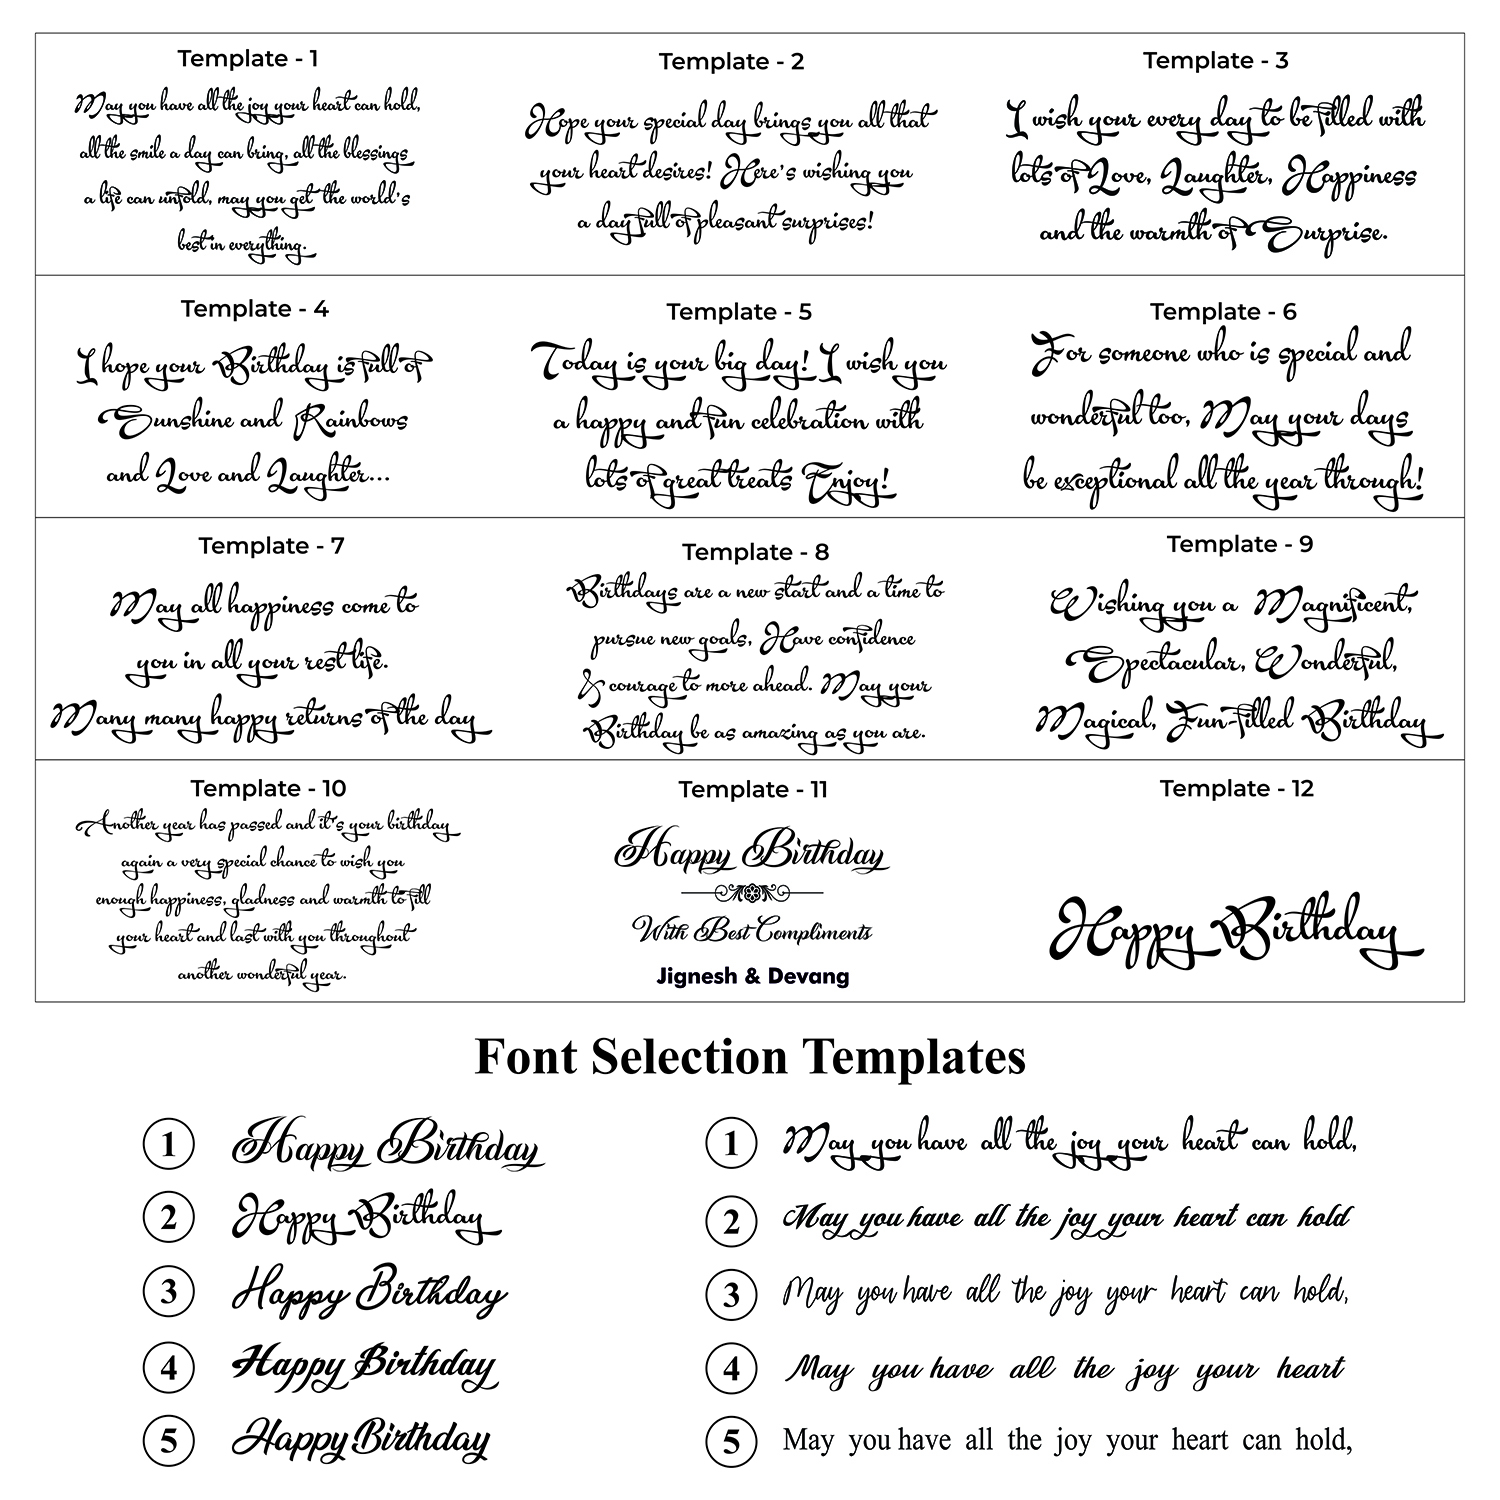 Template - 1
May you have all the joy your heart can hold,
all the smile a day can bring, all the blessings
a life can unfold, may you get the world's
best in everything.
Template - 2
Hope your special day brings you all that
your heart desires! Here's wishing you
a day full of pleasant surprises!
Template - 3
I wish your every day to be filled with
lots of Love, Laughter, Happiness
and the warmth of Surprise.
Template - 4
I hope your Birthday is full of
Sunshine and Rainbows
and Love and Laughter...
Template - 5
Today is your big day! I wish you
a happy and fun celebration with
lots of great treats Enjoy!
Template - 6
For someone who is special and
wonderful too, May your days
be exceptional all the year through!
Template - 7
May all happiness come to
you in all your rest life.
Many many happy returns of the day
Template - 8
Birthdays are a new start and a time to
pursue new goals, Have confidence
& courage to more ahead. May your
Birthday be as amazing as you are.
Template - 9
Wishing you a Magnificent,
Spectacular, Wonderful,
Magical, Fun-filled Birthday
Template - 10
Another year has passed and it's your birthday
again a very special chance to wish you
enough happiness, gladness and warmth to fill
your heart and last with you throughout
another wonderful year.
Template - 11
Happy Birthday
With Best Compliments
Jignesh & Devang
Template - 12
Happy Birthday
Font Selection Templates
1 Happy Birthday
2 Happy Birthday
3 Happy Birthday
4 Happy Birthday
5 Happy Birthday
1 May you have all the joy your heart can hold,
2 May you have all the joy your heart can hold
3 May you have all the joy your heart can hold,
4 May you have all the joy your heart
5 May you have all the joy your heart can hold,